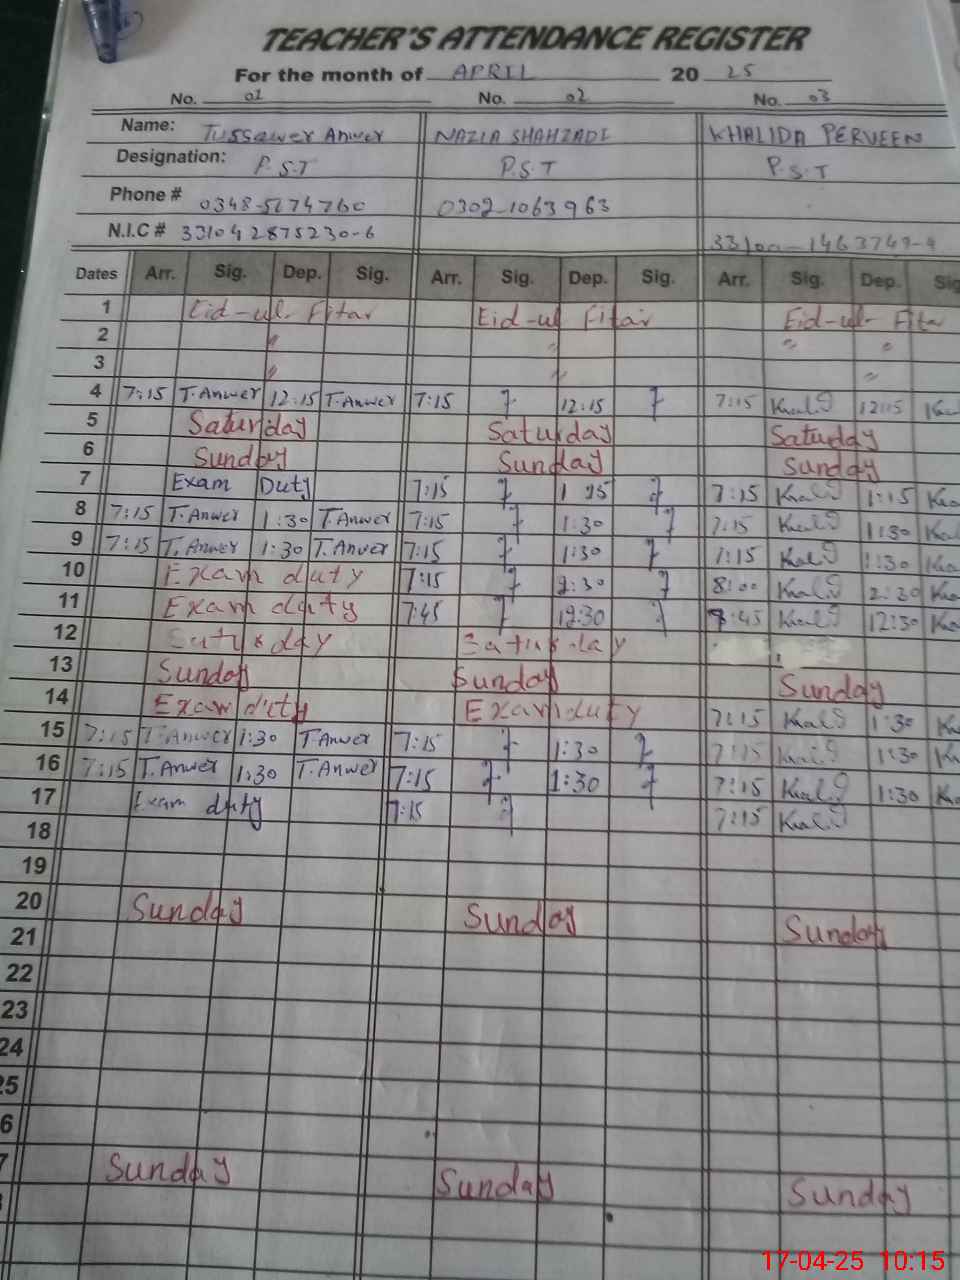 TEACHER'S ATTENDANCE REGISTER
For the month of APRIL 20 25
No. 01 No. 02 No. 03
Name: Tussawer Anwer NAZIA SHAHZADI KHALIDA PERVEEN
Designation: P.S.T P.S.T P.S.T
Phone # 0348-5174760 0302-1063963
N.I.C # 331042875230-6 33100-1463749-4
Dates Arr. Sig. Dep. Sig. Arr. Sig. Dep. Sig. Arr. Sig. Dep. Sig
1 Eid-ul-Fitar Eid-ul Fitar Eid-ul-Fita
2 " " " "
3 " " "
4 7:15 T.Anwer 12:15 T.Anwer 7:15 12:15 7:15 12:15
5 Saturday Saturday Satuday
6 Sunday Sunday Sunday
7 Exam Duty 7:15 7:15 1:15
8 7:15 T.Anwer 1:30 T.Anwer 7:15 1:30 7:15 1:30
9 7:15 T.Anwer 1:30 T.Anver 7:15 1:30 7:15 1:30
10 Exam duty 7:15 2:30 8:00 2:30
11 Exam duty 7:45 12:30 :45 12:30
12 Saturday Saturday
13 Sunday Sunday Sunday
14 Exam duty Exam duty 7:15 1:30
15 7:15 T.Anwer 1:30 T.Anwer 7:15 1:30 7:15 1:30
16 7:15 T.Anwer 1:30 T.Anwer 7:15 1:30 7:15 1:30
17 Exam duty 7:15 7:15
18
19
20 Sunday Sunday Sunday
21
22
23
24
25
6
7 Sunday Sunday Sunday
17-04-25 10:15